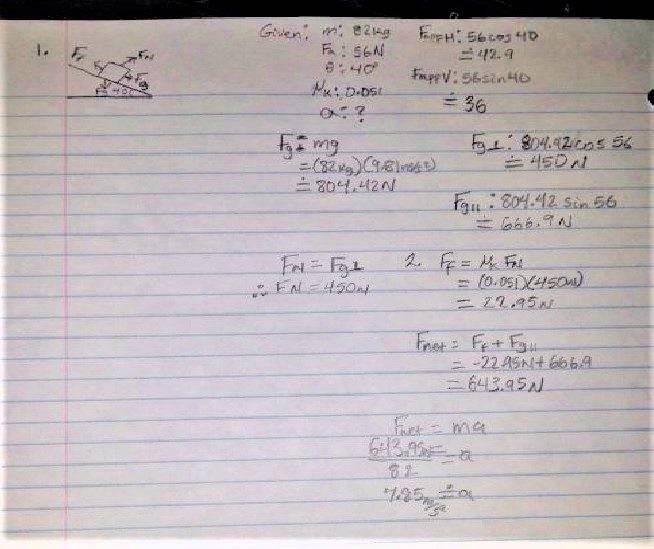 1.
Given: m: 82kg
Fa: 56N
θ: 40°
μk: 0.051
a: ?
FappH: 56cos40
≐ 42.9
FappV: 56sin40
≐ 36
Ff
FN
Fg
40°
Fg = mg
= (82kg)(9.81m/s²)
≐ 804.42N
Fg⊥: 804.42cos 56
≐ 450N
Fg∥: 804.42 sin 56
≐ 666.9N
FN = Fg⊥
∴ FN = 450N
2. Ff = μk FN
= (0.051)(450N)
= 22.95N
Fnet = Ff + Fg∥
= -22.95N + 666.9
= 643.95N
Fnet = ma
643.95N = a
82
7.85m/s² ≐ a